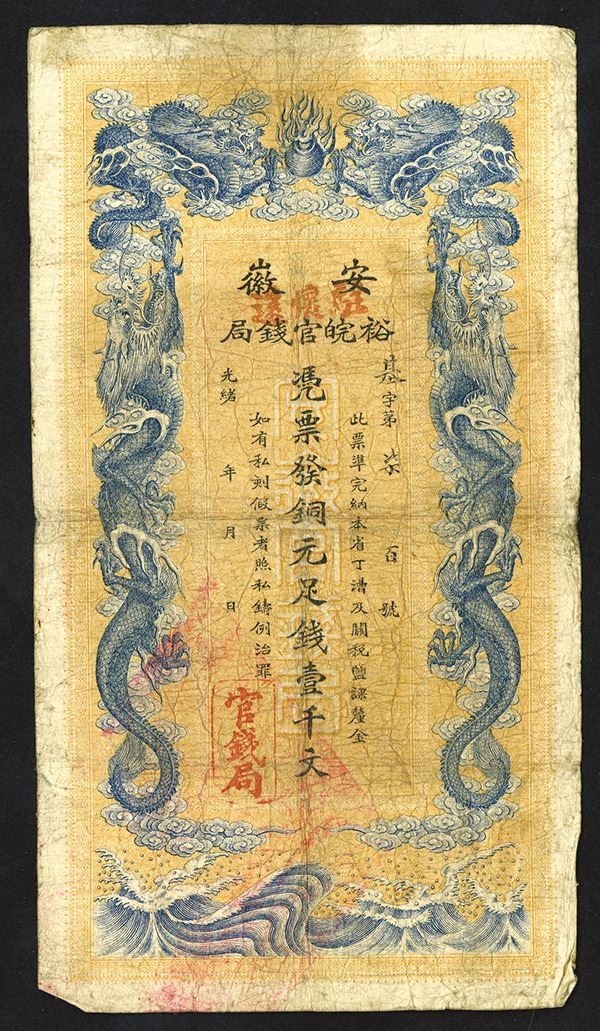 安徽
裕皖官錢局
字第 柒 百 號
此票準完納本省丁漕及關稅鹽課釐金
憑票發銅元足錢壹千文
如有私刻假票者照私鑄例治罪
光緒 年 月 日
官錢局